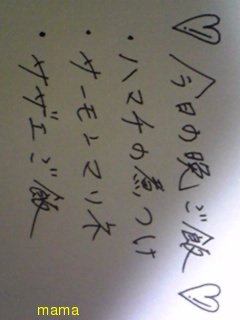 ♡今日の晩ご飯♡
・ハマチの煮つけ
・サーモンマリネ
・サザエご飯
mama